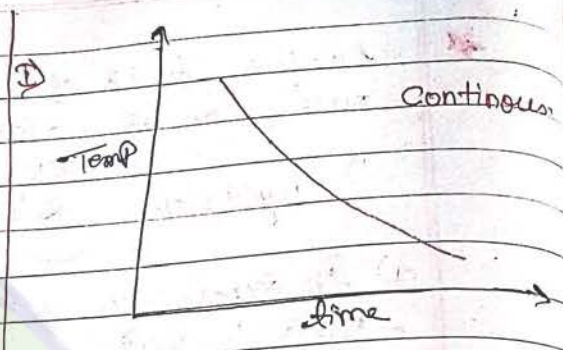 I)
Continous.
Temp
time